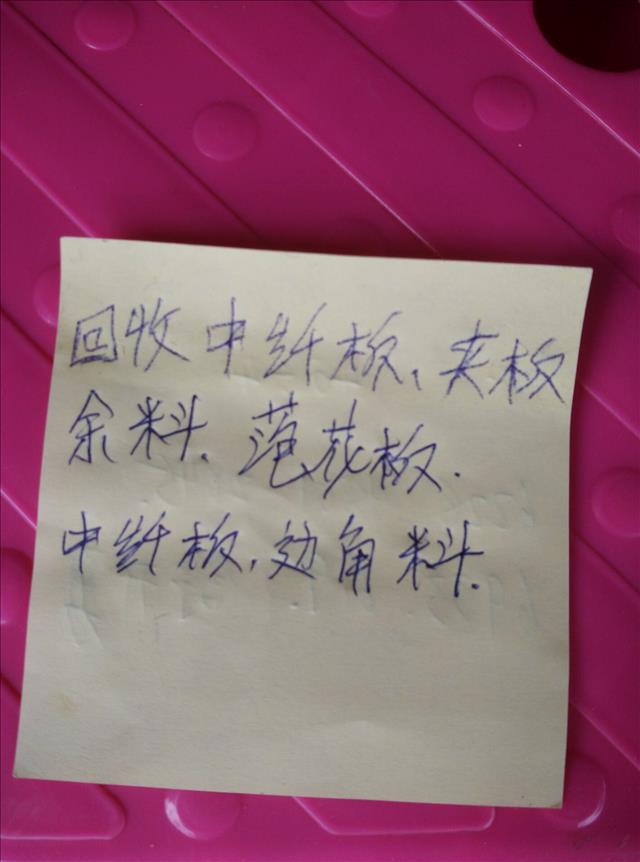 回收中纤板、夹板
余料.范花板.
中纤板,边角料.